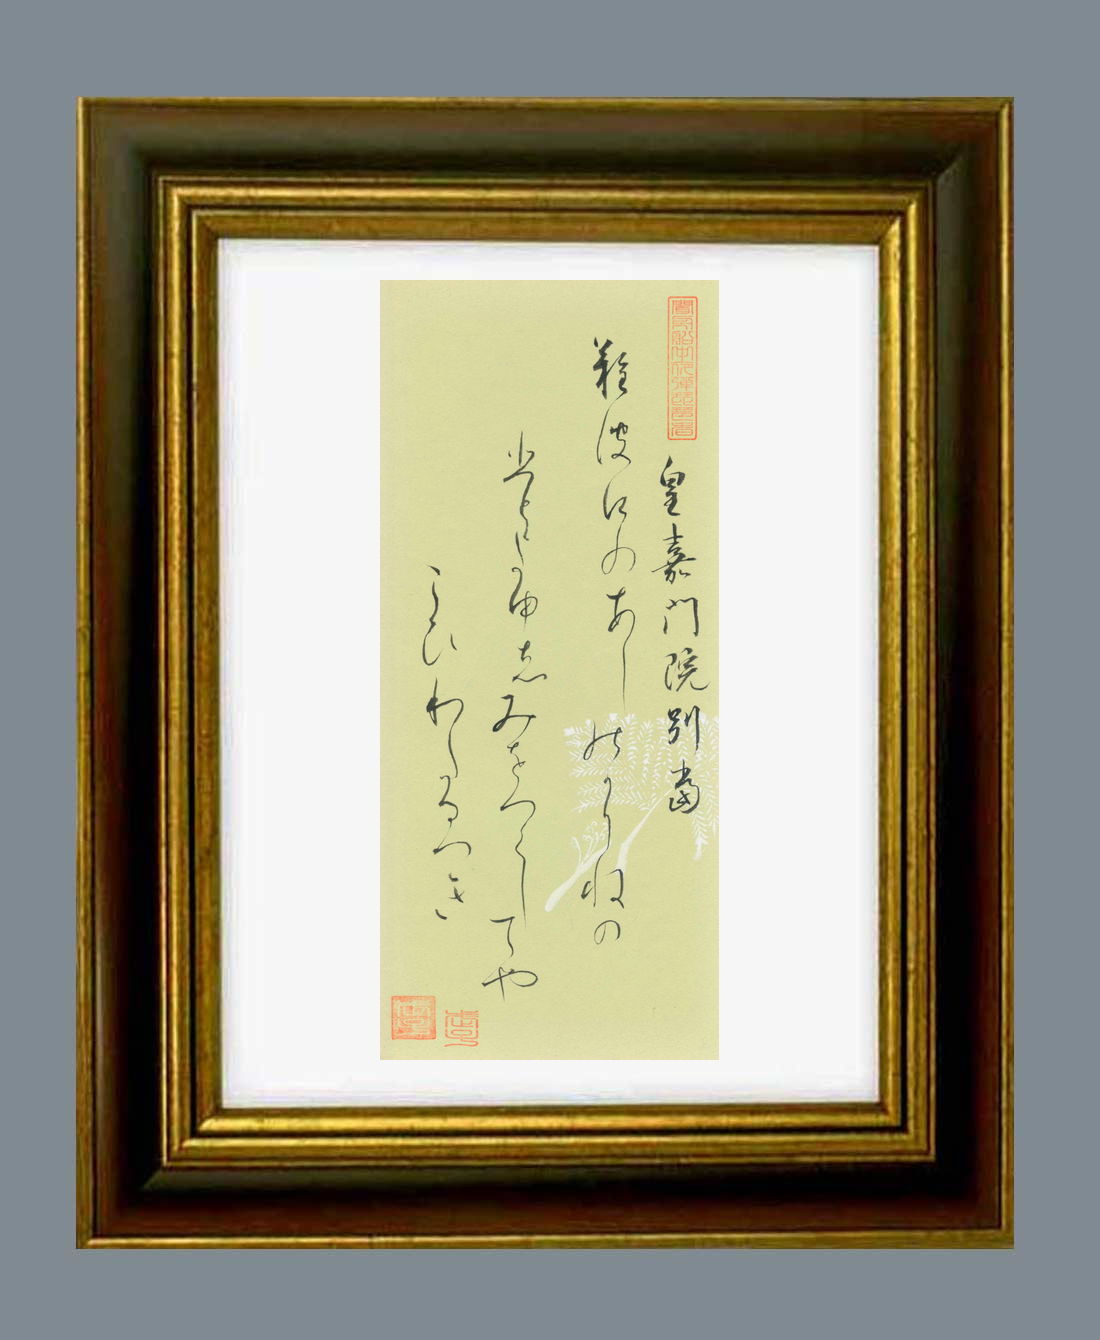 皇嘉門院別當
難波江のあしのかりねの
ひとよゆゑみをつくしてや
こひわたるへき